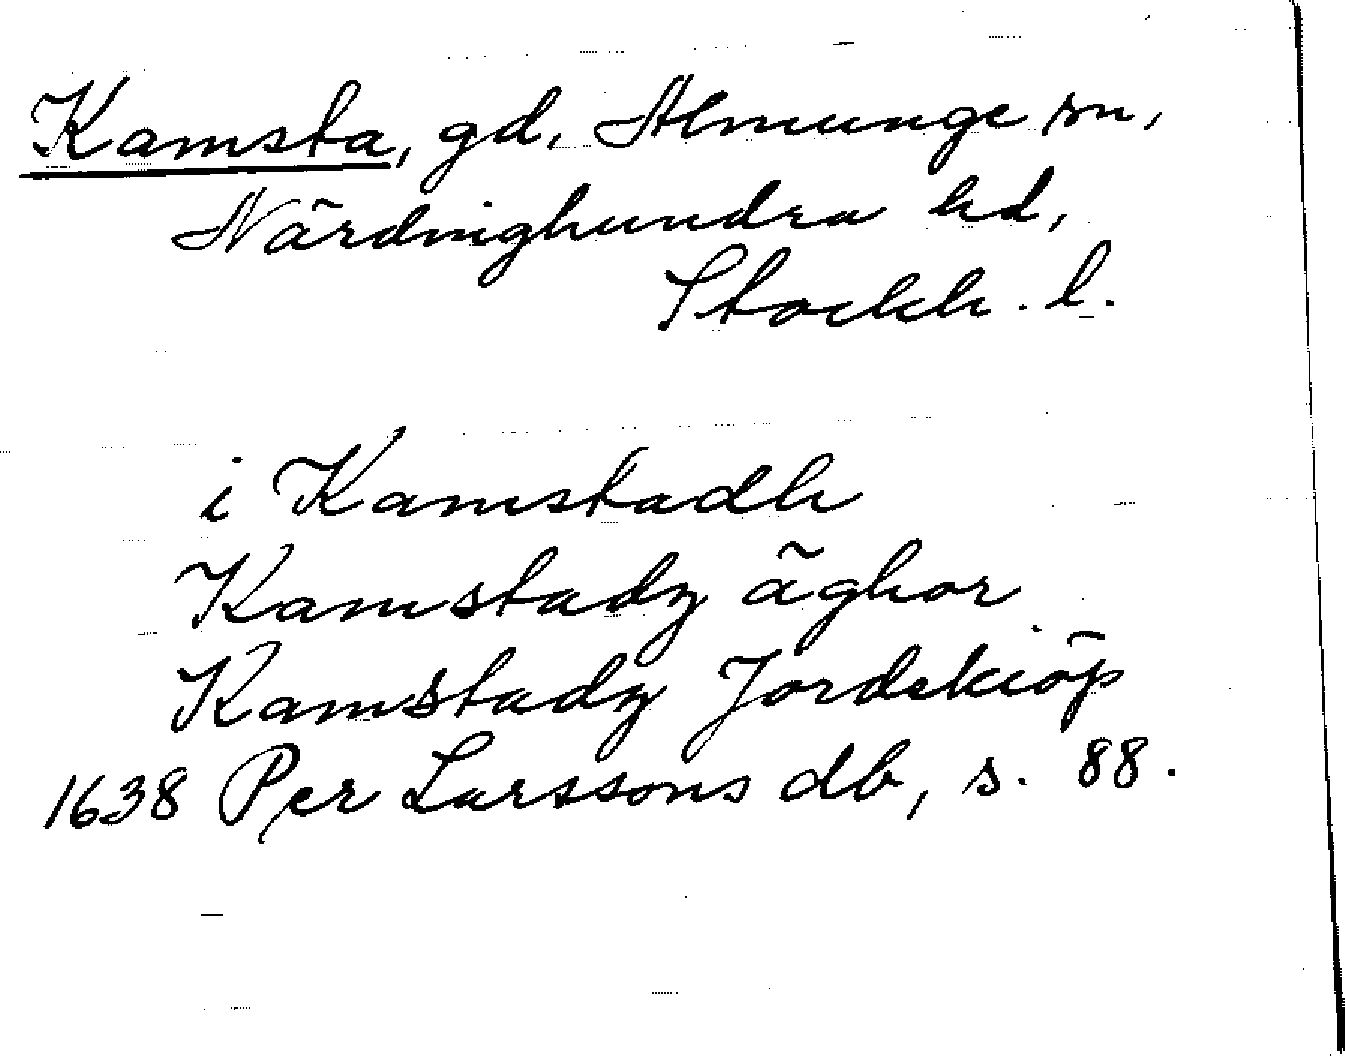 Kamsta, gd, Almunge sn,
Närdinghundra hd,
Stockh. l.
i Kamstadh
Kamstadz äghor
Kamstadz Jordekiöp
1638 Per Larssons db, s. 88.